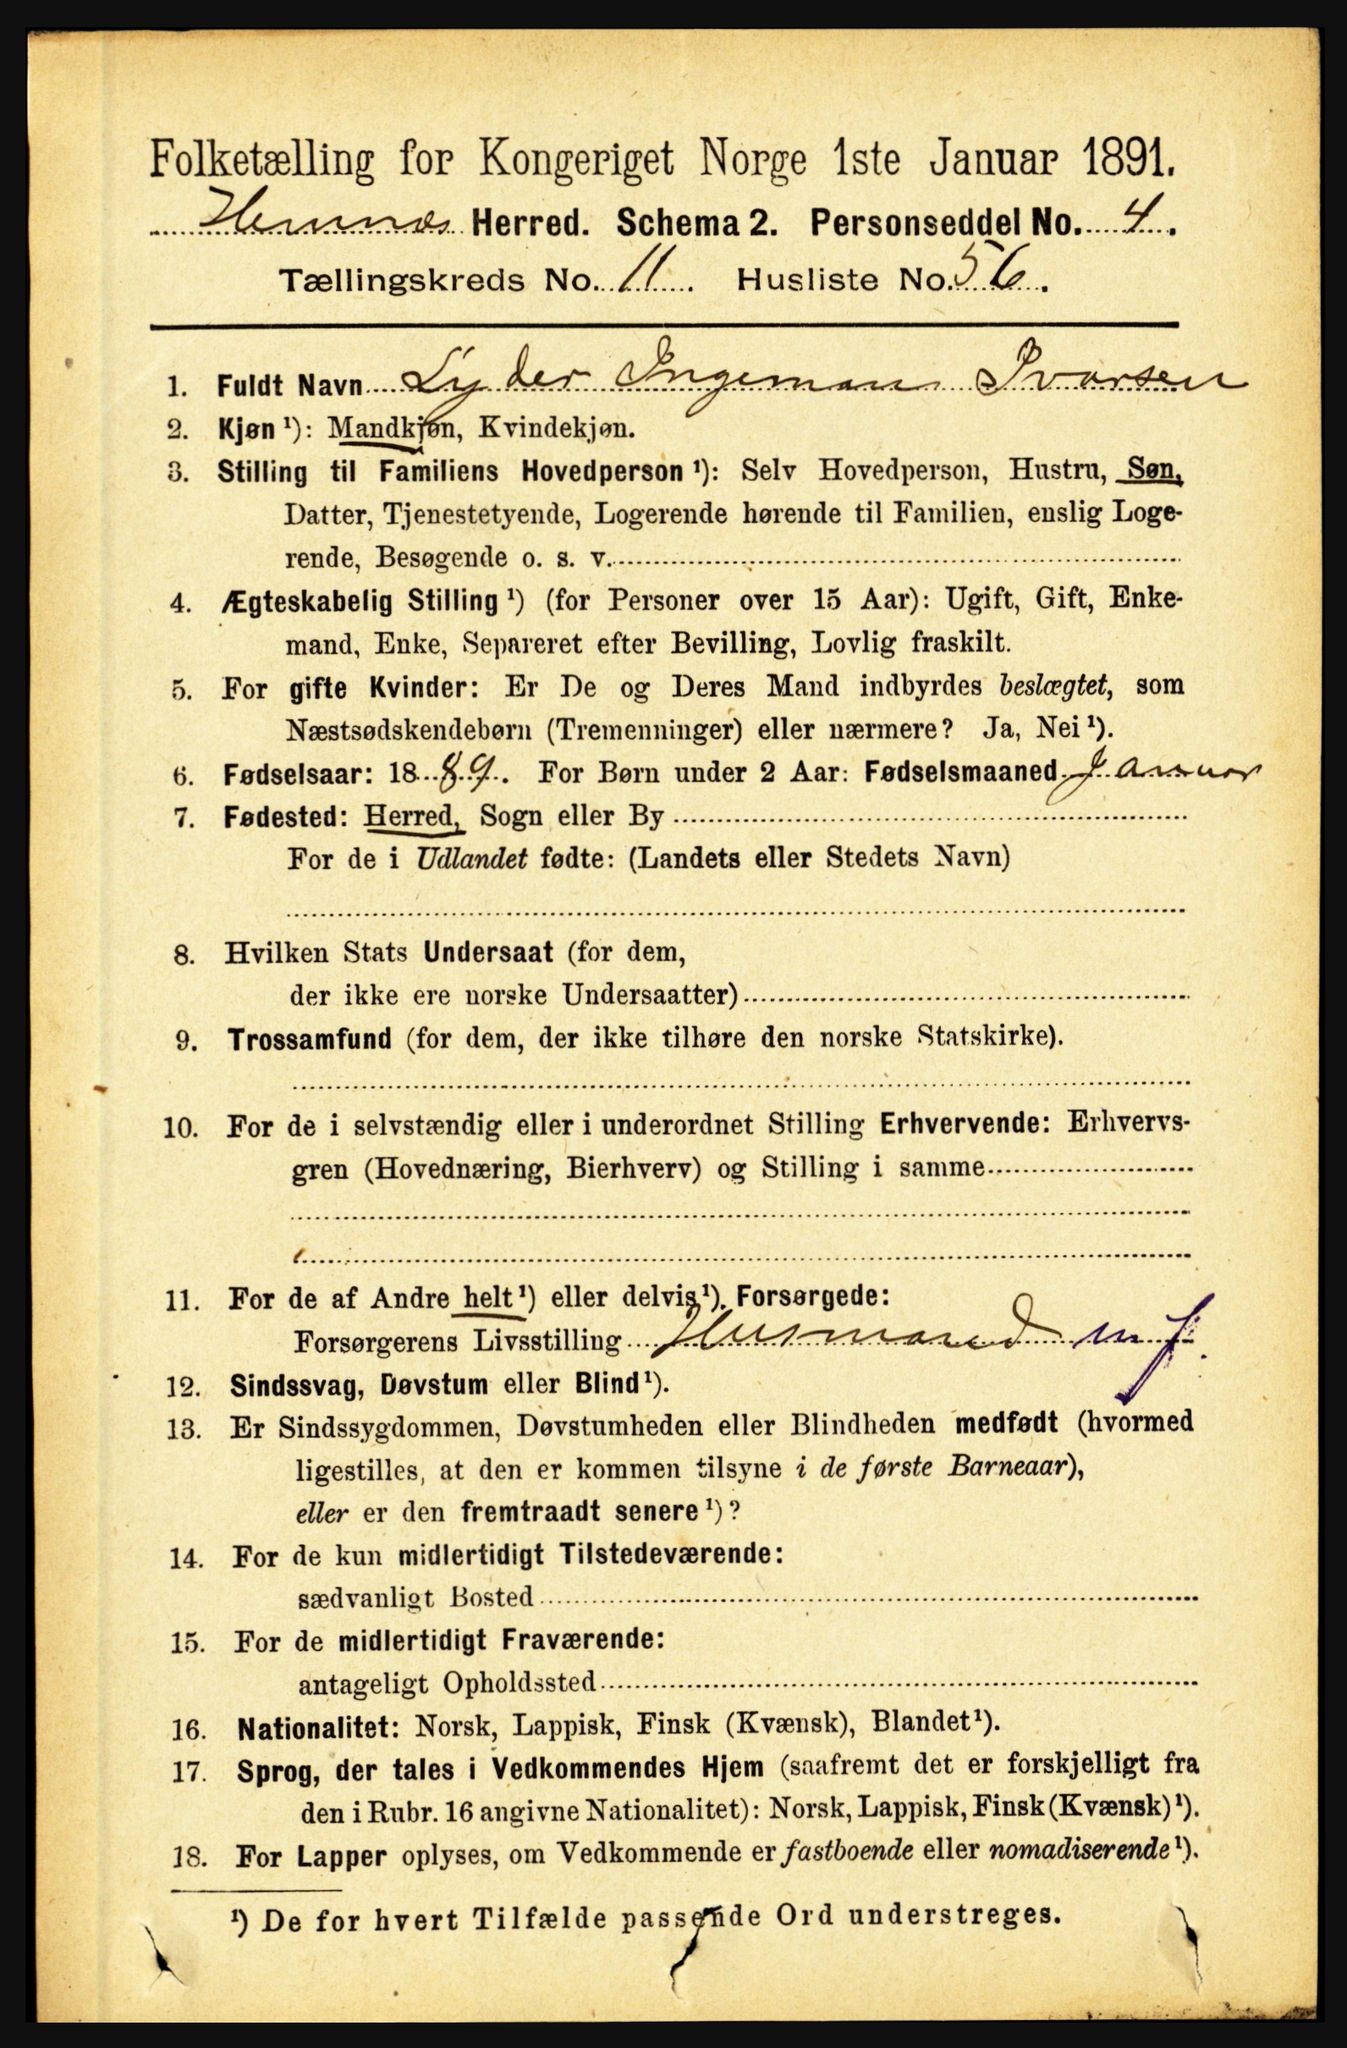 Folketælling for Kongeriget Norge 1ste Januar 1891.
Hemnæs Herred. Schema 2. Personseddel No. 4.
Tællingskreds No. 11. Husliste No. 56.
1. Fuldt Navn Lyder Ingeman Ivarsen
2. Kjøn ¹): Mandkjøn, Kvindekjøn.
3. Stilling til Familiens Hovedperson ¹): Selv Hovedperson, Hustru, Søn,
Datter, Tjenestetyende, Logerende hørende til Familien, enslig Loge-
rende, Besøgende o. s. v.
4. Ægteskabelig Stilling ¹) (for Personer over 15 Aar): Ugift, Gift, Enke-
mand, Enke, Separeret efter Bevilling, Lovlig fraskilt.
5. For gifte Kvinder: Er De og Deres Mand indbyrdes beslægtet, som
Næstsødskendebørn (Tremenninger) eller nærmere? Ja, Nei ¹).
6. Fødselsaar: 18 89. For Børn under 2 Aar: Fødselsmaaned Januar
7. Fødested: Herred, Sogn eller By
For de i Udlandet fødte: (Landets eller Stedets Navn)
8. Hvilken Stats Undersaat (for dem,
der ikke ere norske Undersaatter)
9. Trossamfund (for dem, der ikke tilhøre den norske Statskirke).
10. For de i selvstændig eller i underordnet Stilling Erhvervende: Erhvervs-
gren (Hovednæring, Bierhverv) og Stilling i samme
11. For de af Andre helt ¹) eller delvis ¹). Forsørgede:
Forsørgerens Livsstilling Husmand m j
12. Sindssvag, Døvstum eller Blind ¹).
13. Er Sindssygdommen, Døvstumheden eller Blindheden medfødt (hvormed
ligestilles, at den er kommen tilsyne i de første Barneaar),
eller er den fremtraadt senere ¹)?
14. For de kun midlertidigt Tilstedeværende:
sædvanligt Bosted
15. For de midlertidigt Fraværende:
antageligt Opholdssted
16. Nationalitet: Norsk, Lappisk, Finsk (Kvænsk), Blandet ¹).
17. Sprog, der tales i Vedkommendes Hjem (saafremt det er forskjelligt fra
den i Rubr. 16 angivne Nationalitet): Norsk, Lappisk, Finsk (Kvænsk) ¹).
18. For Lapper oplyses, om Vedkommende er fastboende eller nomadiserende ¹).
¹) De for hvert Tilfælde passende Ord understreges.